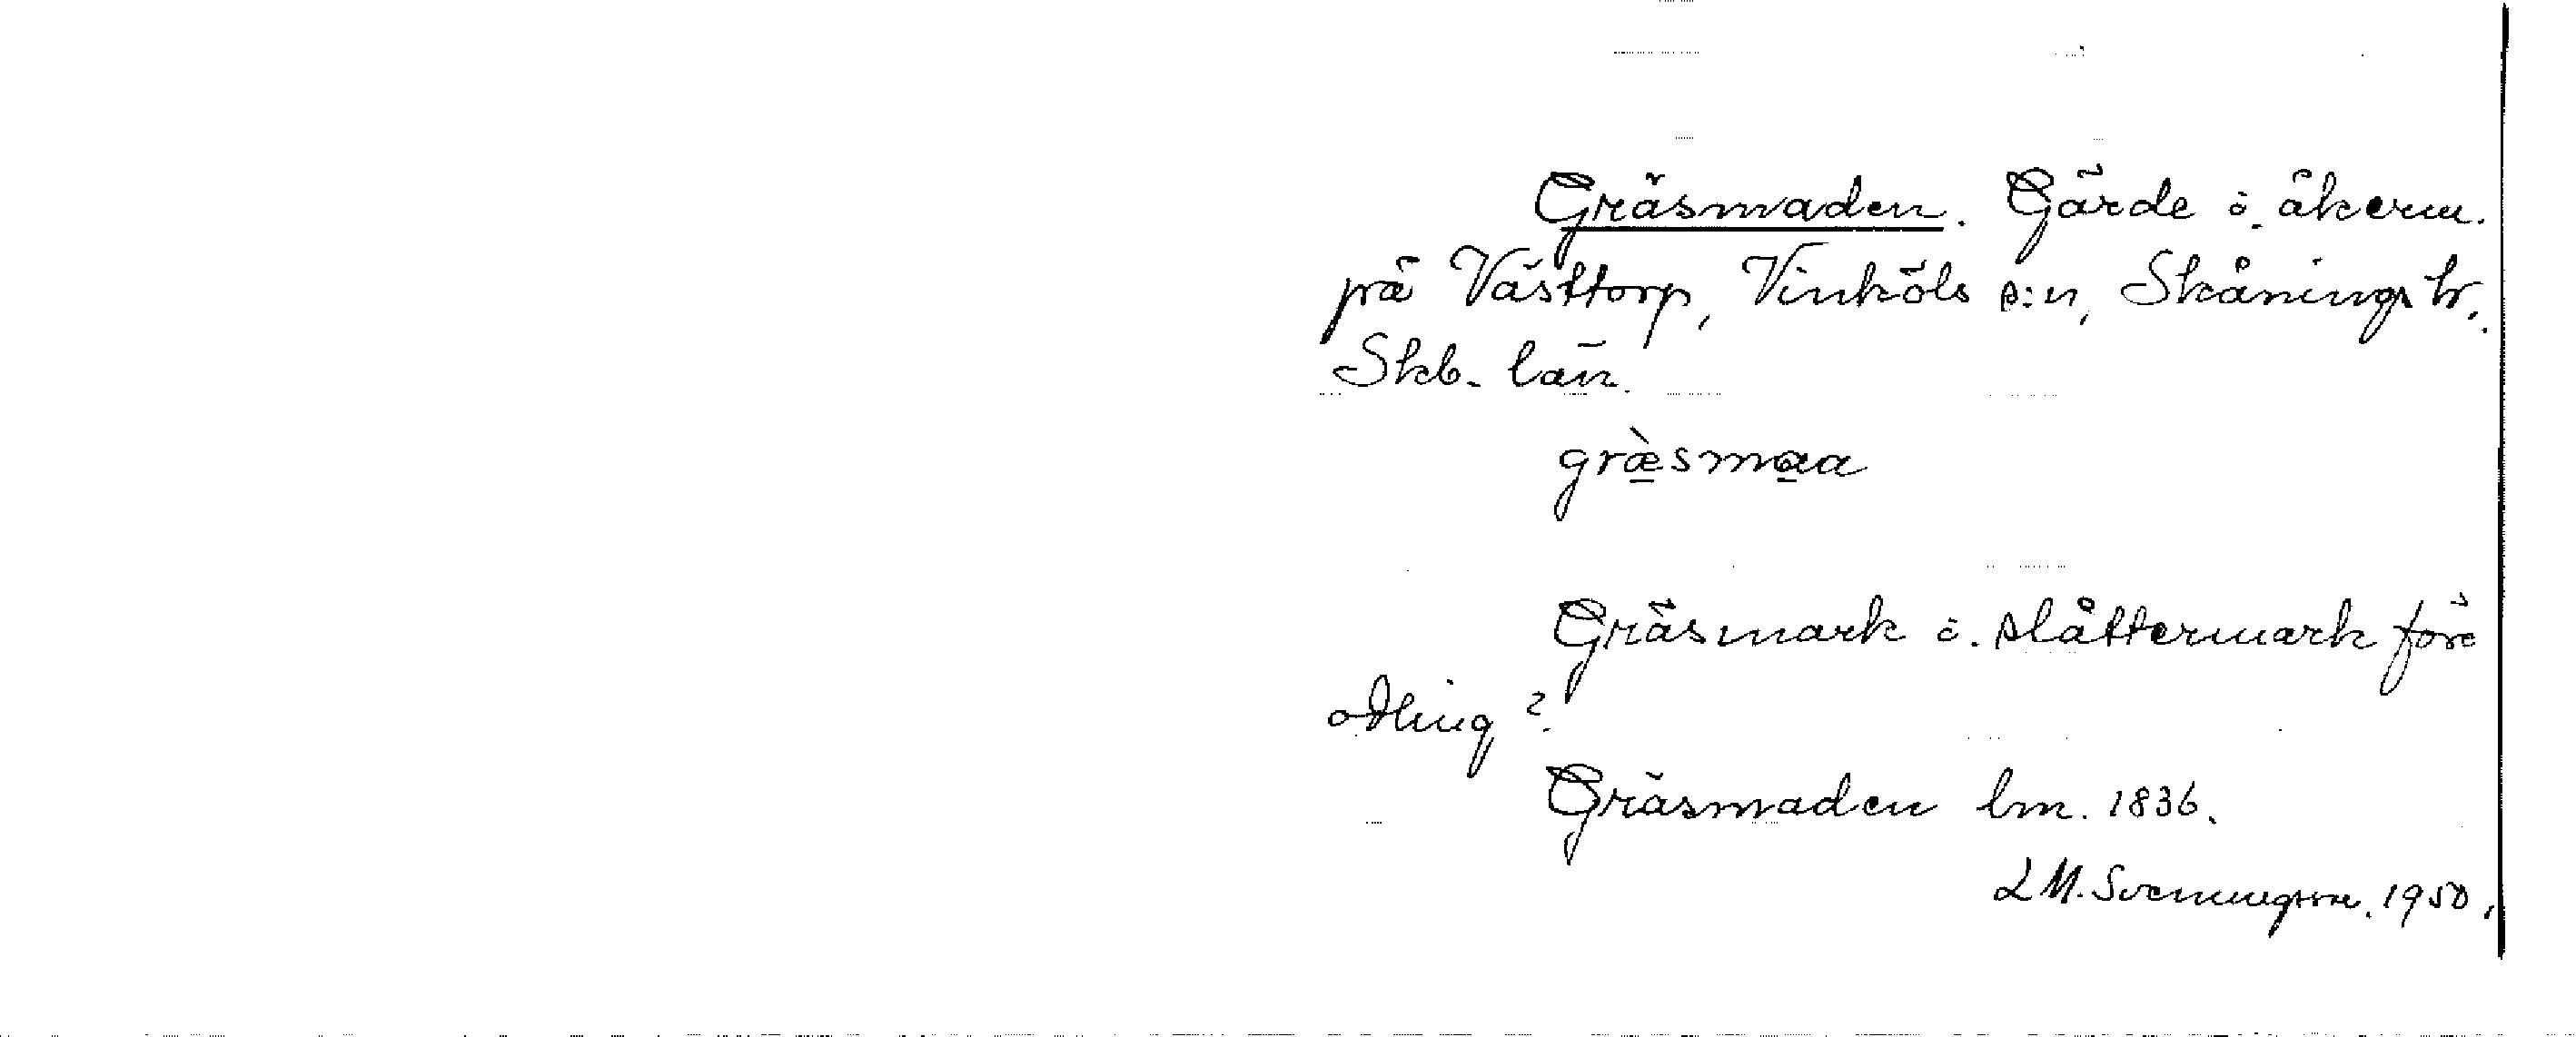 Gräsmaden. Gärde o. åkerm.
på Västtorp, Vinköls s:n, Skånings hr.
Skb. län.
græ̀smaa
Gräsmark o. slåttermark före
odling?
Gräsmaden lm. 1836.
L M. Svenungsson. 1950.